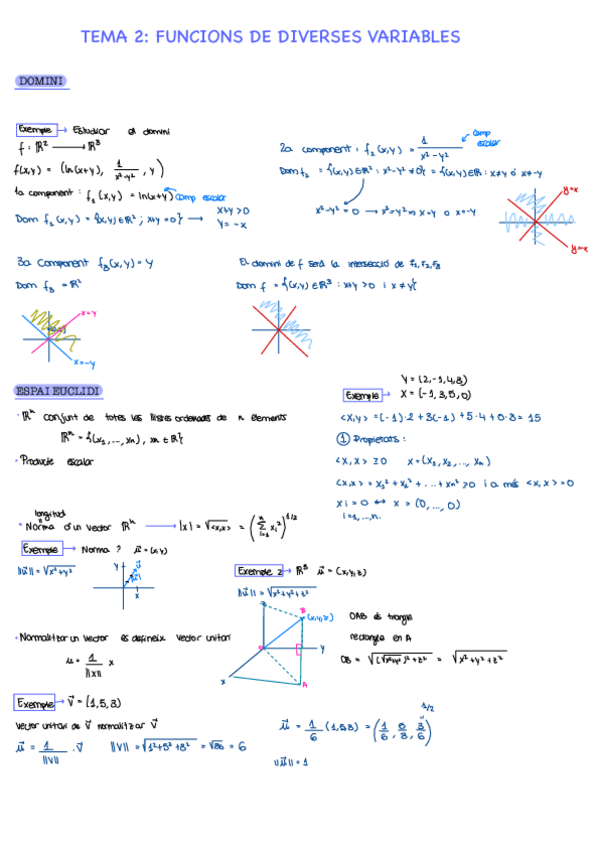 TEMA 2: FUNCIONS DE DIVERSES VARIABLES
DOMINI
Exemple → Estudiar el domini
f: ℝ² → ℝ³
f(x,y) = (ln(x+y), 1/(x²-y²), y)
1a component: f₁(x,y) = ln(x+y) Comp escalar
Dom f₁(x,y) = {(x,y)∈ℝ²; x+y=0} → x+y>0
y=-x
2a component: f₂(x,y) = 1/(x²-y²) Comp escalar
Dom f₂ = {(x,y)∈ℝ²: x²-y²≠0} = {(x,y)∈ℝ²: x≠y ó x≠-y
x²-y²=0 → x²=y² ⇔ x=y o x=-y
y=x
y=x
3a Component f₃(x,y) = y
Dom f₃ = ℝ²
x=y
x=-y
El domini de f serà la intersecció de f₁, f₂, f₃
Dom f = {(x,y)∈ℝ³: x+y>0 i x≠y}
ESPAI EUCLIDI
· ℝⁿ conjunt de totes les llistes ordenades de n elements
ℝⁿ = {(x₁, ..., xₙ), xn ∈ ℝ}
· Producte escalar
y = (2,-1,4,3)
Exemple → x = (-1,3,5,0)
<x,y> = (-1)·2 + 3(-1) + 5·4 + 0·3 = 15
① Propietats:
<x,x> ≥ 0 x = (x₁, x₂, ..., xₙ)
<x,x> = x₁² + x₂² + ... + xn² ≥ 0 i a més <x,x> = 0
xi = 0 ↔ x = (0, ..., 0)
i=1, ..., n.
longitud
· Norma d'un vector ℝⁿ → |x| = √<x,x> = (Σⁿᵢ₌₁ xᵢ²)^1/2
Exemple → Norma? u⃗ = (x,y)
||u⃗|| = √x²+y²
y
x
Exemple 2 → ℝ³ u⃗ = (x,y,z)
||u⃗|| = √x²+y²+z²
B (x,y,z)
y
x
A
OAB és triangle
rectangle en A
OB = √(√x²+y²)²+z² = √x²+y²+z²
· Normalitzar un vector es defineix vector unitari
u = 1/||x|| x
Exemple → v⃗ = (1,5,3)
Vector unitari de v⃗ normalitzar v⃗
u⃗ = 1/||v|| · v⃗ ||v|| = √1²+5²+3² = √36 = 6
u⃗ = 1/6 (1,5,3) = (1/6, 5/6, 3/6)
1/2
||u⃗|| = 1